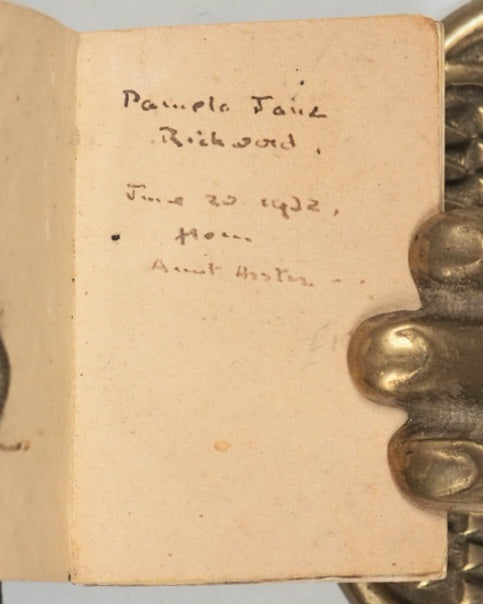 Pamela Jane
Rickword.
June 20 1932.
from
Aunt Hester